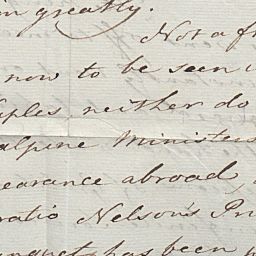 in greatly.
Not a f
now to be seen i
ples, neither do
alpine Ministers
earance abroad,
ratio Nelson's Pri
nquet has been p